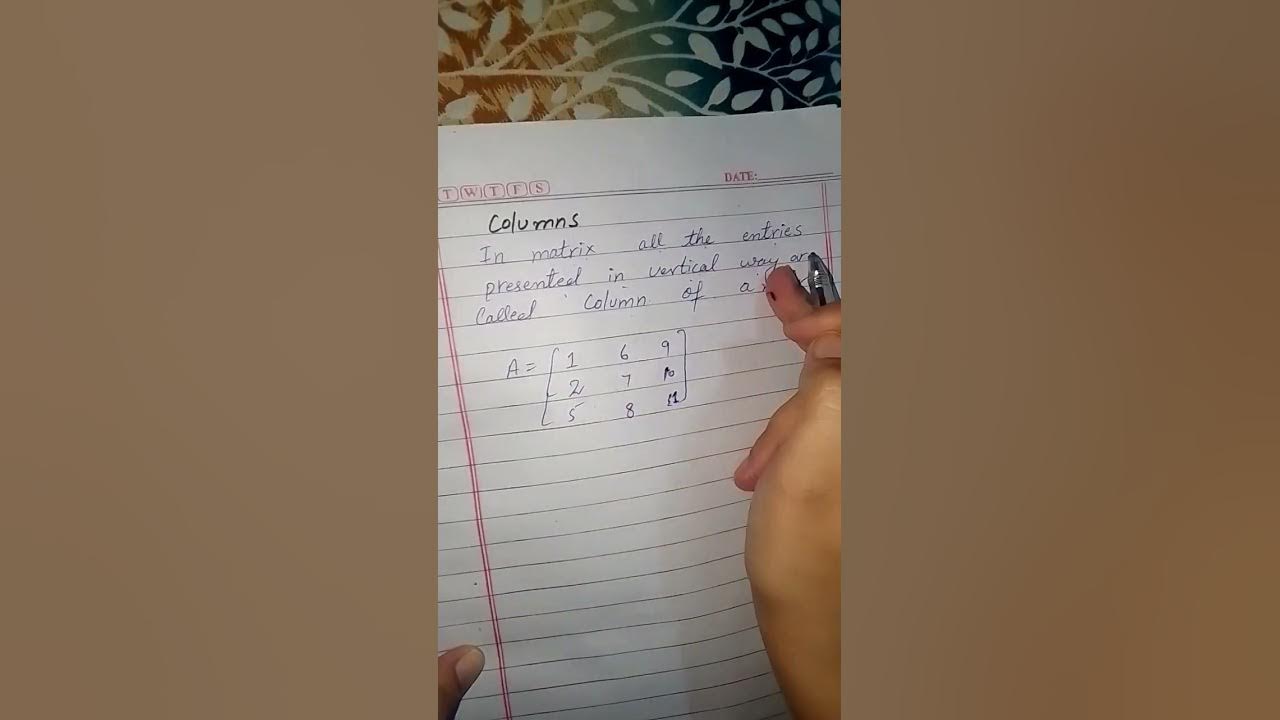 T W T F S
DATE:
Columns
In matrix all the entries
presented in vertical way are
Called Column of a
A = [ 1 6 9
2 7 10
5 8 11 ]